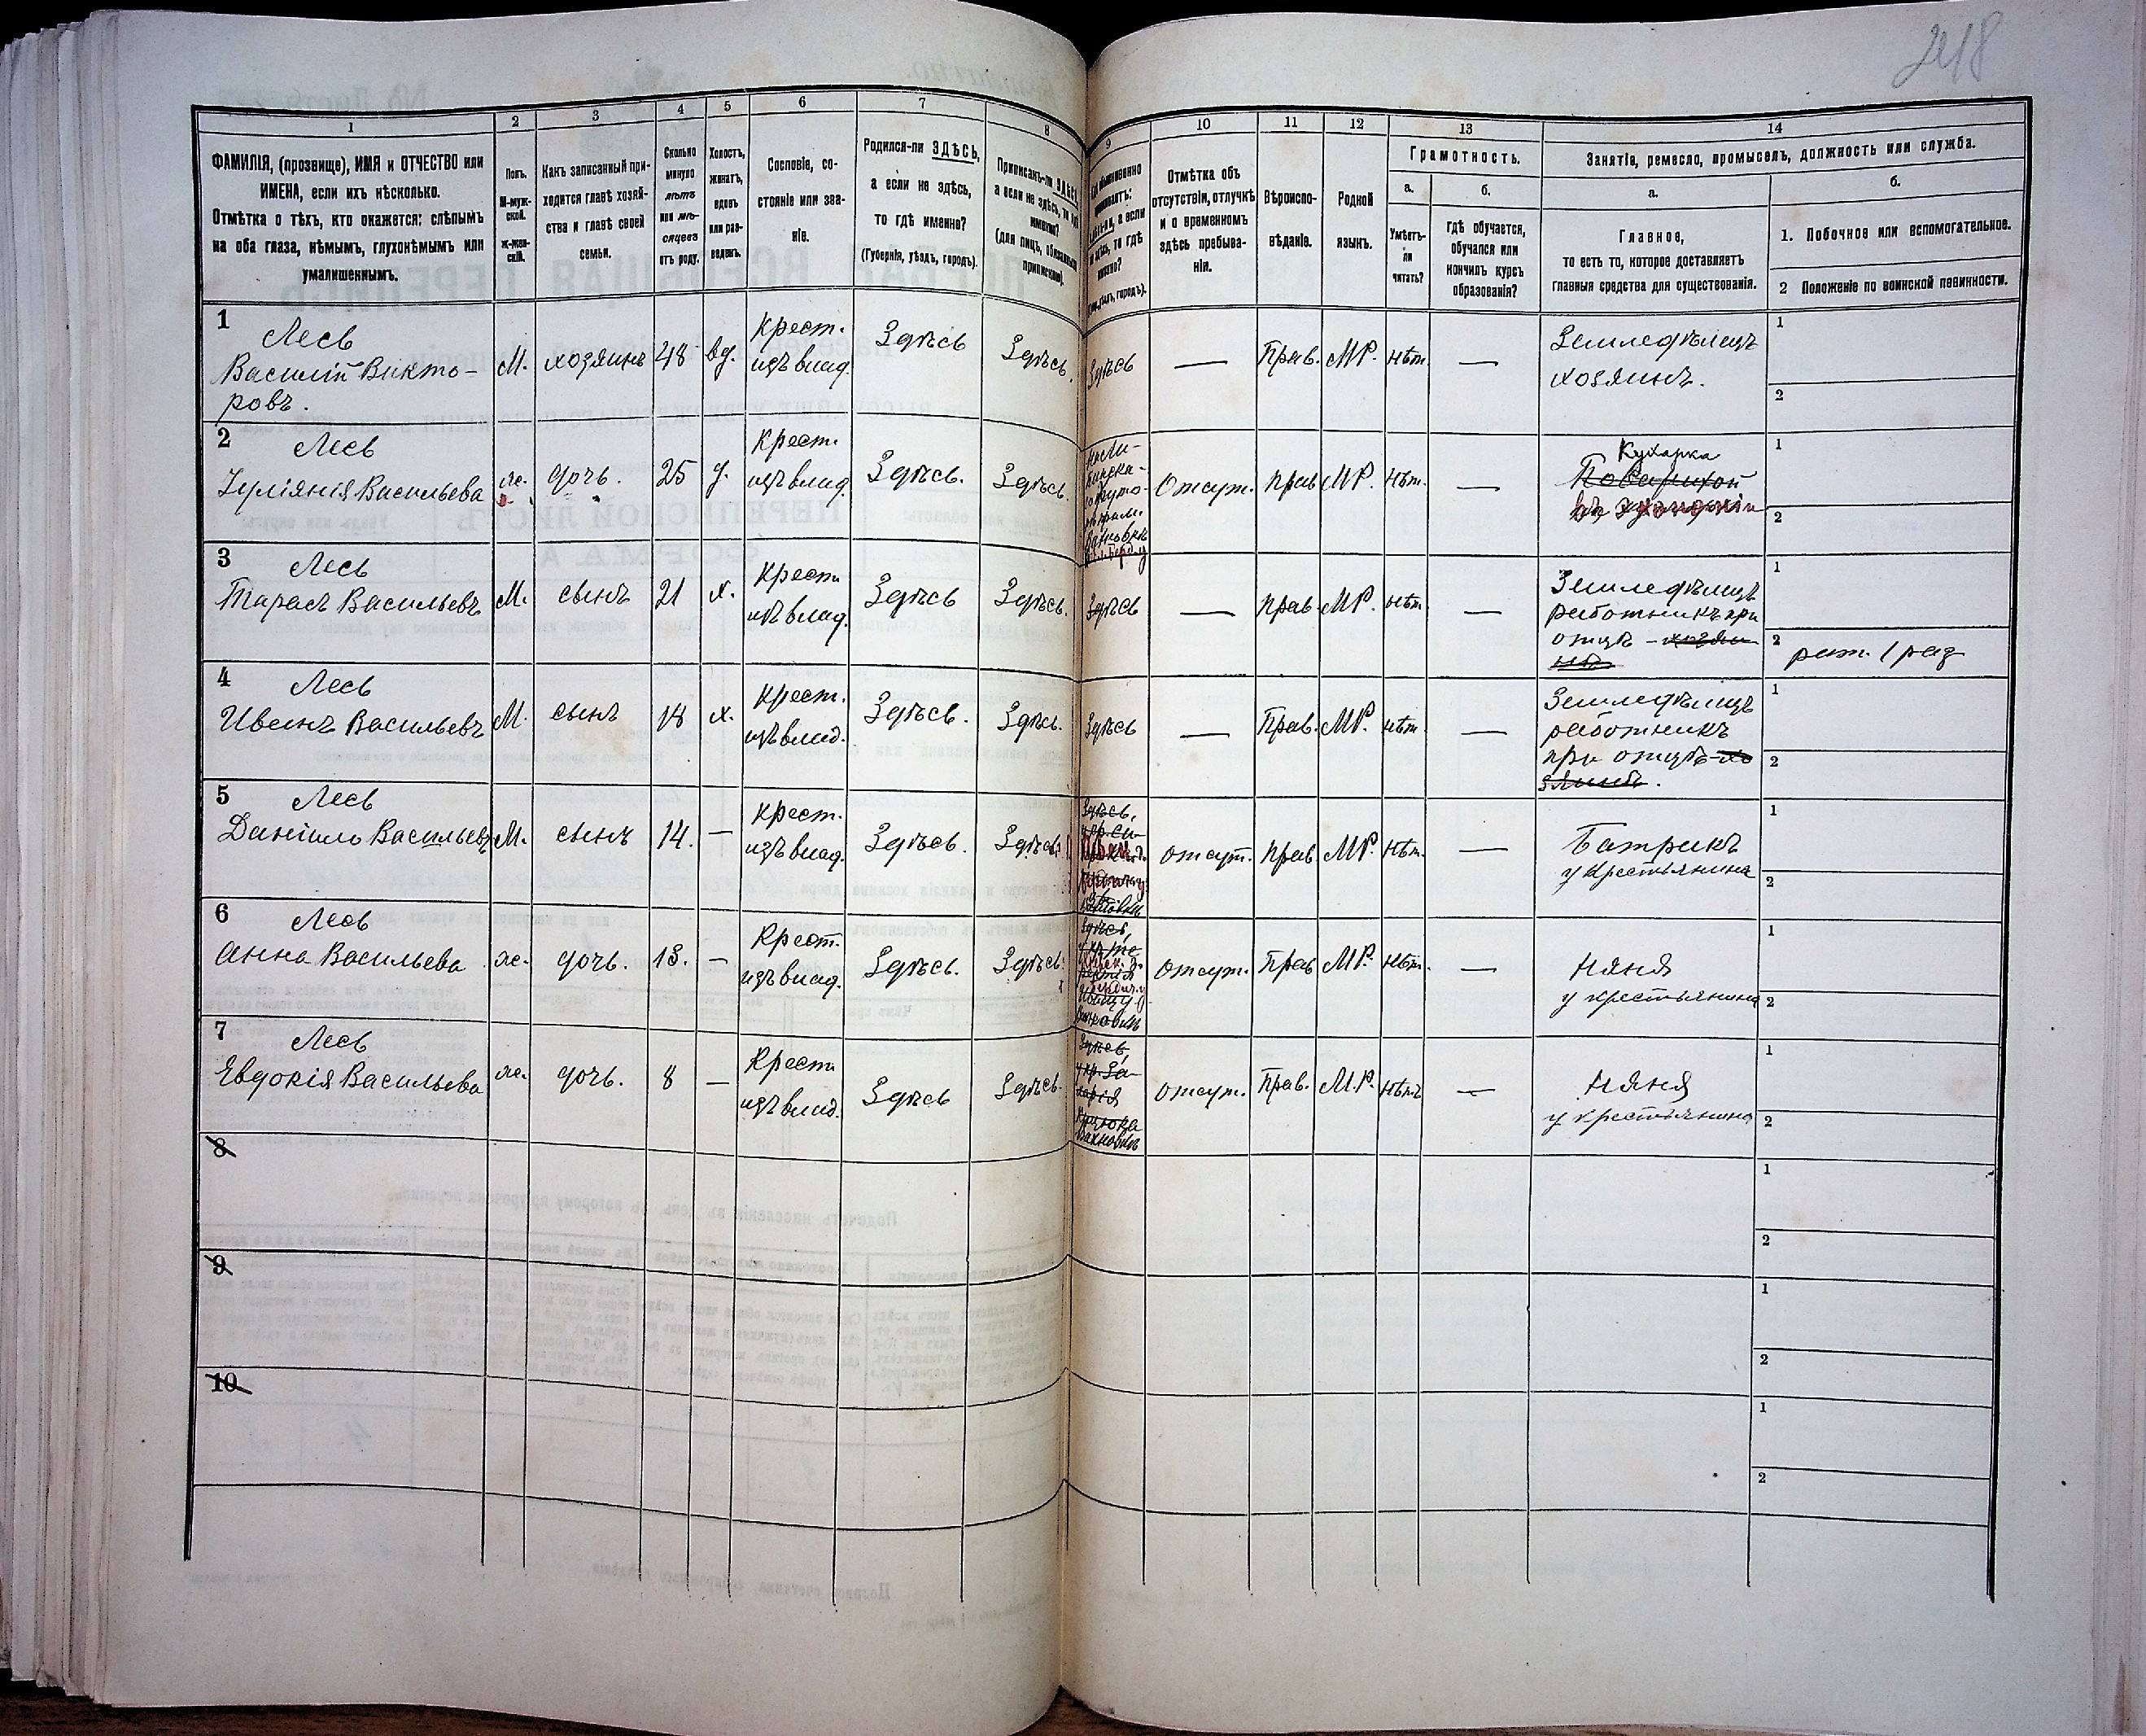 218
1 2 3 4 5 6 7 8 9 10 11 12 13 14
ФАМИЛІЯ, (прозвище), ИМЯ и ОТЧЕСТВО или
ИМЕНА, если ихъ нѣсколько.
Отмѣтка о тѣхъ, кто окажется: слѣпымъ
на оба глаза, нѣмымъ, глухонѣмымъ или
умалишеннымъ.
Полъ.
М-муж-
ской.
ж-жен-
скій.
Какъ записанный при-
ходится главѣ хозяй-
ства и главѣ своей
семьи.
Сколько
минуло
лѣтъ
или мѣ-
сяцевъ
отъ роду.
Холостъ,
женатъ,
вдовъ
или раз-
веденъ.
Сословіе, со-
стояніе или зва-
ніе.
Родился-ли ЗДѢСЬ,
а если не здѣсь,
то гдѣ именно?
(Губернія, уѣздъ, городъ).
Приписанъ-ли ЗДѢСЬ,
а если не здѣсь, то гдѣ
именно?
(для лицъ, обязанныхъ
припискою).
Отмѣтка объ
отсутствіи, отлучкѣ
и о временномъ
здѣсь пребыва-
ніи.
Вѣроиспо-
вѣданіе.
Родной
языкъ.
Грамотность.
а.
Умѣетъ-
ли
читать?
б.
Гдѣ обучается,
обучался или
кончилъ курсъ
образованія?
Занятіе, ремесло, промыселъ, должность или служба.
а.
Главное,
то есть то, которое доставляетъ
главныя средства для существованія.
б.
1. Побочное или вспомогательное.
2 Положеніе по воинской повинности.
1 Лесь
Василій Викто-
ровъ.
М. хозяинъ 48 вд.
Крест.
изъ влад.
Здѣсь Здѣсь. Здѣсь — Прав. МР. нѣт. —
Земледѣлецъ
хозяинъ.
1
2
2 Лесь
Іуліянія Васильева
ж. дочь. 25 д.
Крест.
изъ влад.
Здѣсь. Здѣсь. Отсут. прав МР. Нѣт. —
Кухарка
Поварихой
1
2
3 Лесь
Тарасъ Васильевъ
М. сынъ 21 х.
Крест
изъ влад.
Здѣсь Здѣсь. Здѣсь — прав. МР. нѣт. —
Земледѣлецъ
работникъ при
отцѣ -
1
2 рат. 1 раз
4 Лесь
Иванъ Васильевъ
М. сынъ 18 х.
Крест.
изъ влад.
Здѣсь. Здѣсь. Здѣсь — Прав. МР. нѣт. —
Земледѣлецъ
работникъ
при отцѣ-хо
зяинѣ.
1
2
5 Лесь
Даніило Васильевъ
М. сынъ 14. —
Крест.
изъ влад.
Здѣсь. Здѣсь. Здѣсь, отсут. прав. МР. Нѣт. —
Батракъ
у крестьянина
1
2
6 Лесь
Анна Васильева
ж. дочь. 13. —
Крест.
изъ влад.
Здѣсь. Здѣсь. Здѣсь, отсут. Прав МР. Нѣт. —
Няня
у крестьянина
1
2
7 Лесь
Евдокія Васильева
ж. дочь. 8 —
Крест
изъ влад.
Здѣсь Здѣсь. Здѣсь,
у кр. За-
харія
отсут. Прав. М.Р. Нѣтъ —
Няня
у крестьянина
1
2
8
1
2
9
1
2
10
1
2